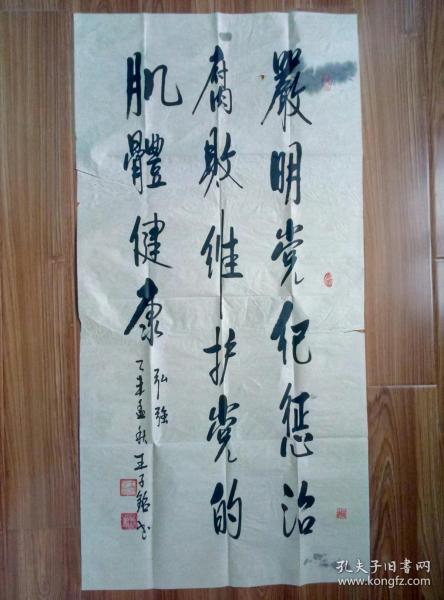 嚴明党纪惩治
腐败维护党的
肌體健康
弘强
乙未孟秋王子铭书
孔夫子旧书网
www.kongfz.com